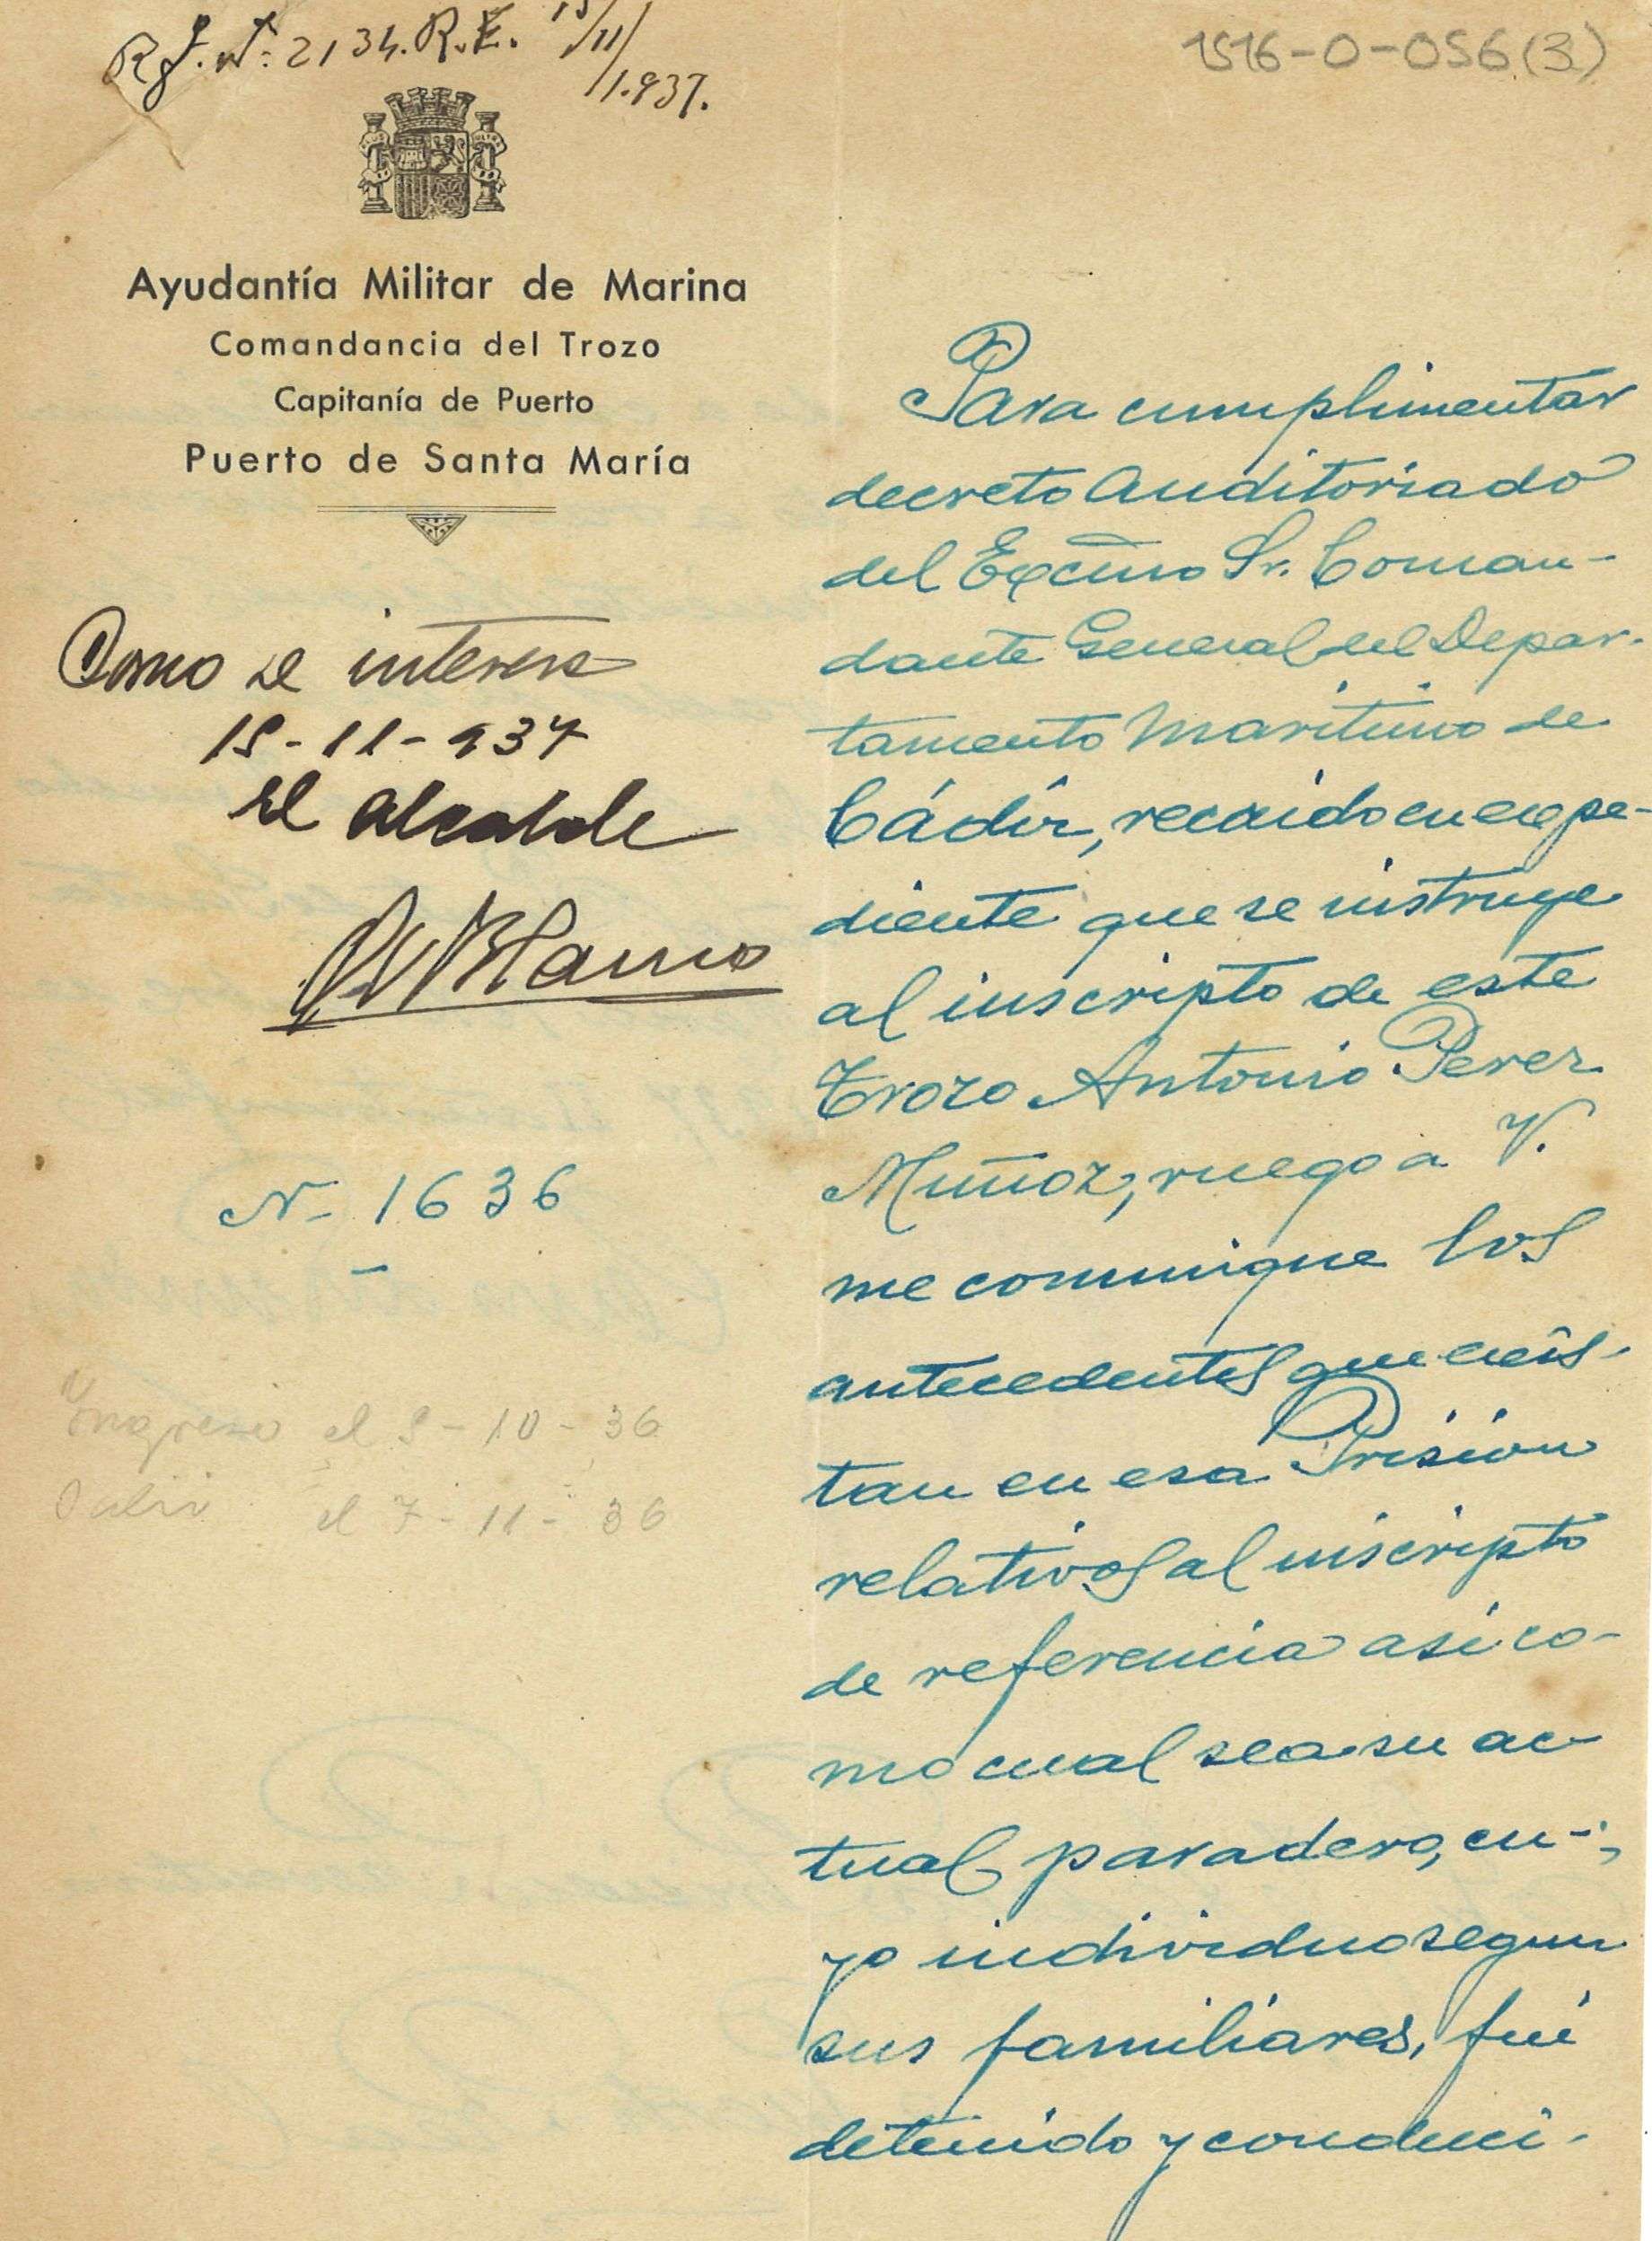 Rg. Nº: 2134. R.E. 15/11/1.937.
1516-0-056(3)
Ayudantía Militar de Marina
Comandancia del Trozo
Capitanía de Puerto
Puerto de Santa María
Como se interesa
15-11-937
El alcalde
Blanco
N- 1636
Ingreso el 9-10-36
Salió el 7-11-36
Para cumplimentar
decreto auditoriado
del Excmo Sr. Coman-
dante General del Depar-
tamento Maritimo de
Cádiz, recaido en expe-
diente que se instruye
al inscripto de este
Trozo Antonio Perez
Muñoz, ruego a V.
me comunique los
antecedentes que exis-
tan en esa Prision
relativos al inscripto
de referencia asi co-
mo cual sea su ac-
tual paradero, cu-
yo individuo segun
sus familiares, fué
detenido y conduci-